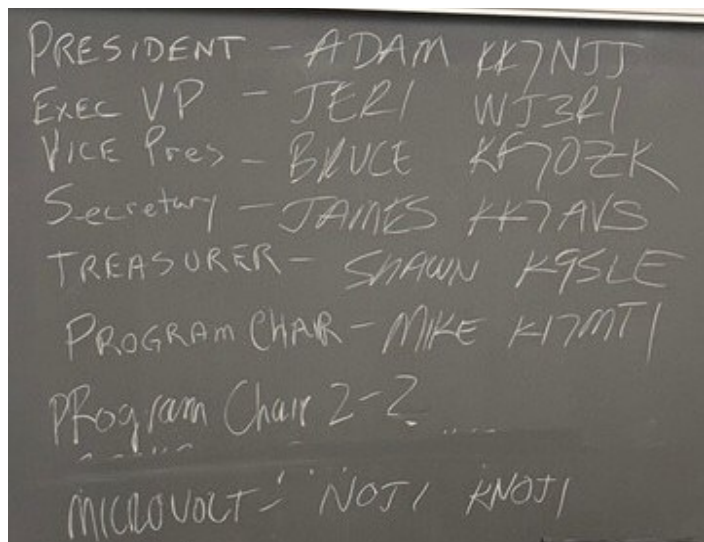 PRESIDENT - ADAM KK7NJJ
EXEC VP - JERI WJ3RI
VICE Pres - BRUCE KF7OZK
Secretary - JAMES KK7AVS
TREASURER - SHAWN K9SLE
PROGRAM CHAIR - MIKE KI7MTI
PRogram Chair 2 - ?
MICROVOLT - NOJI KNOJI